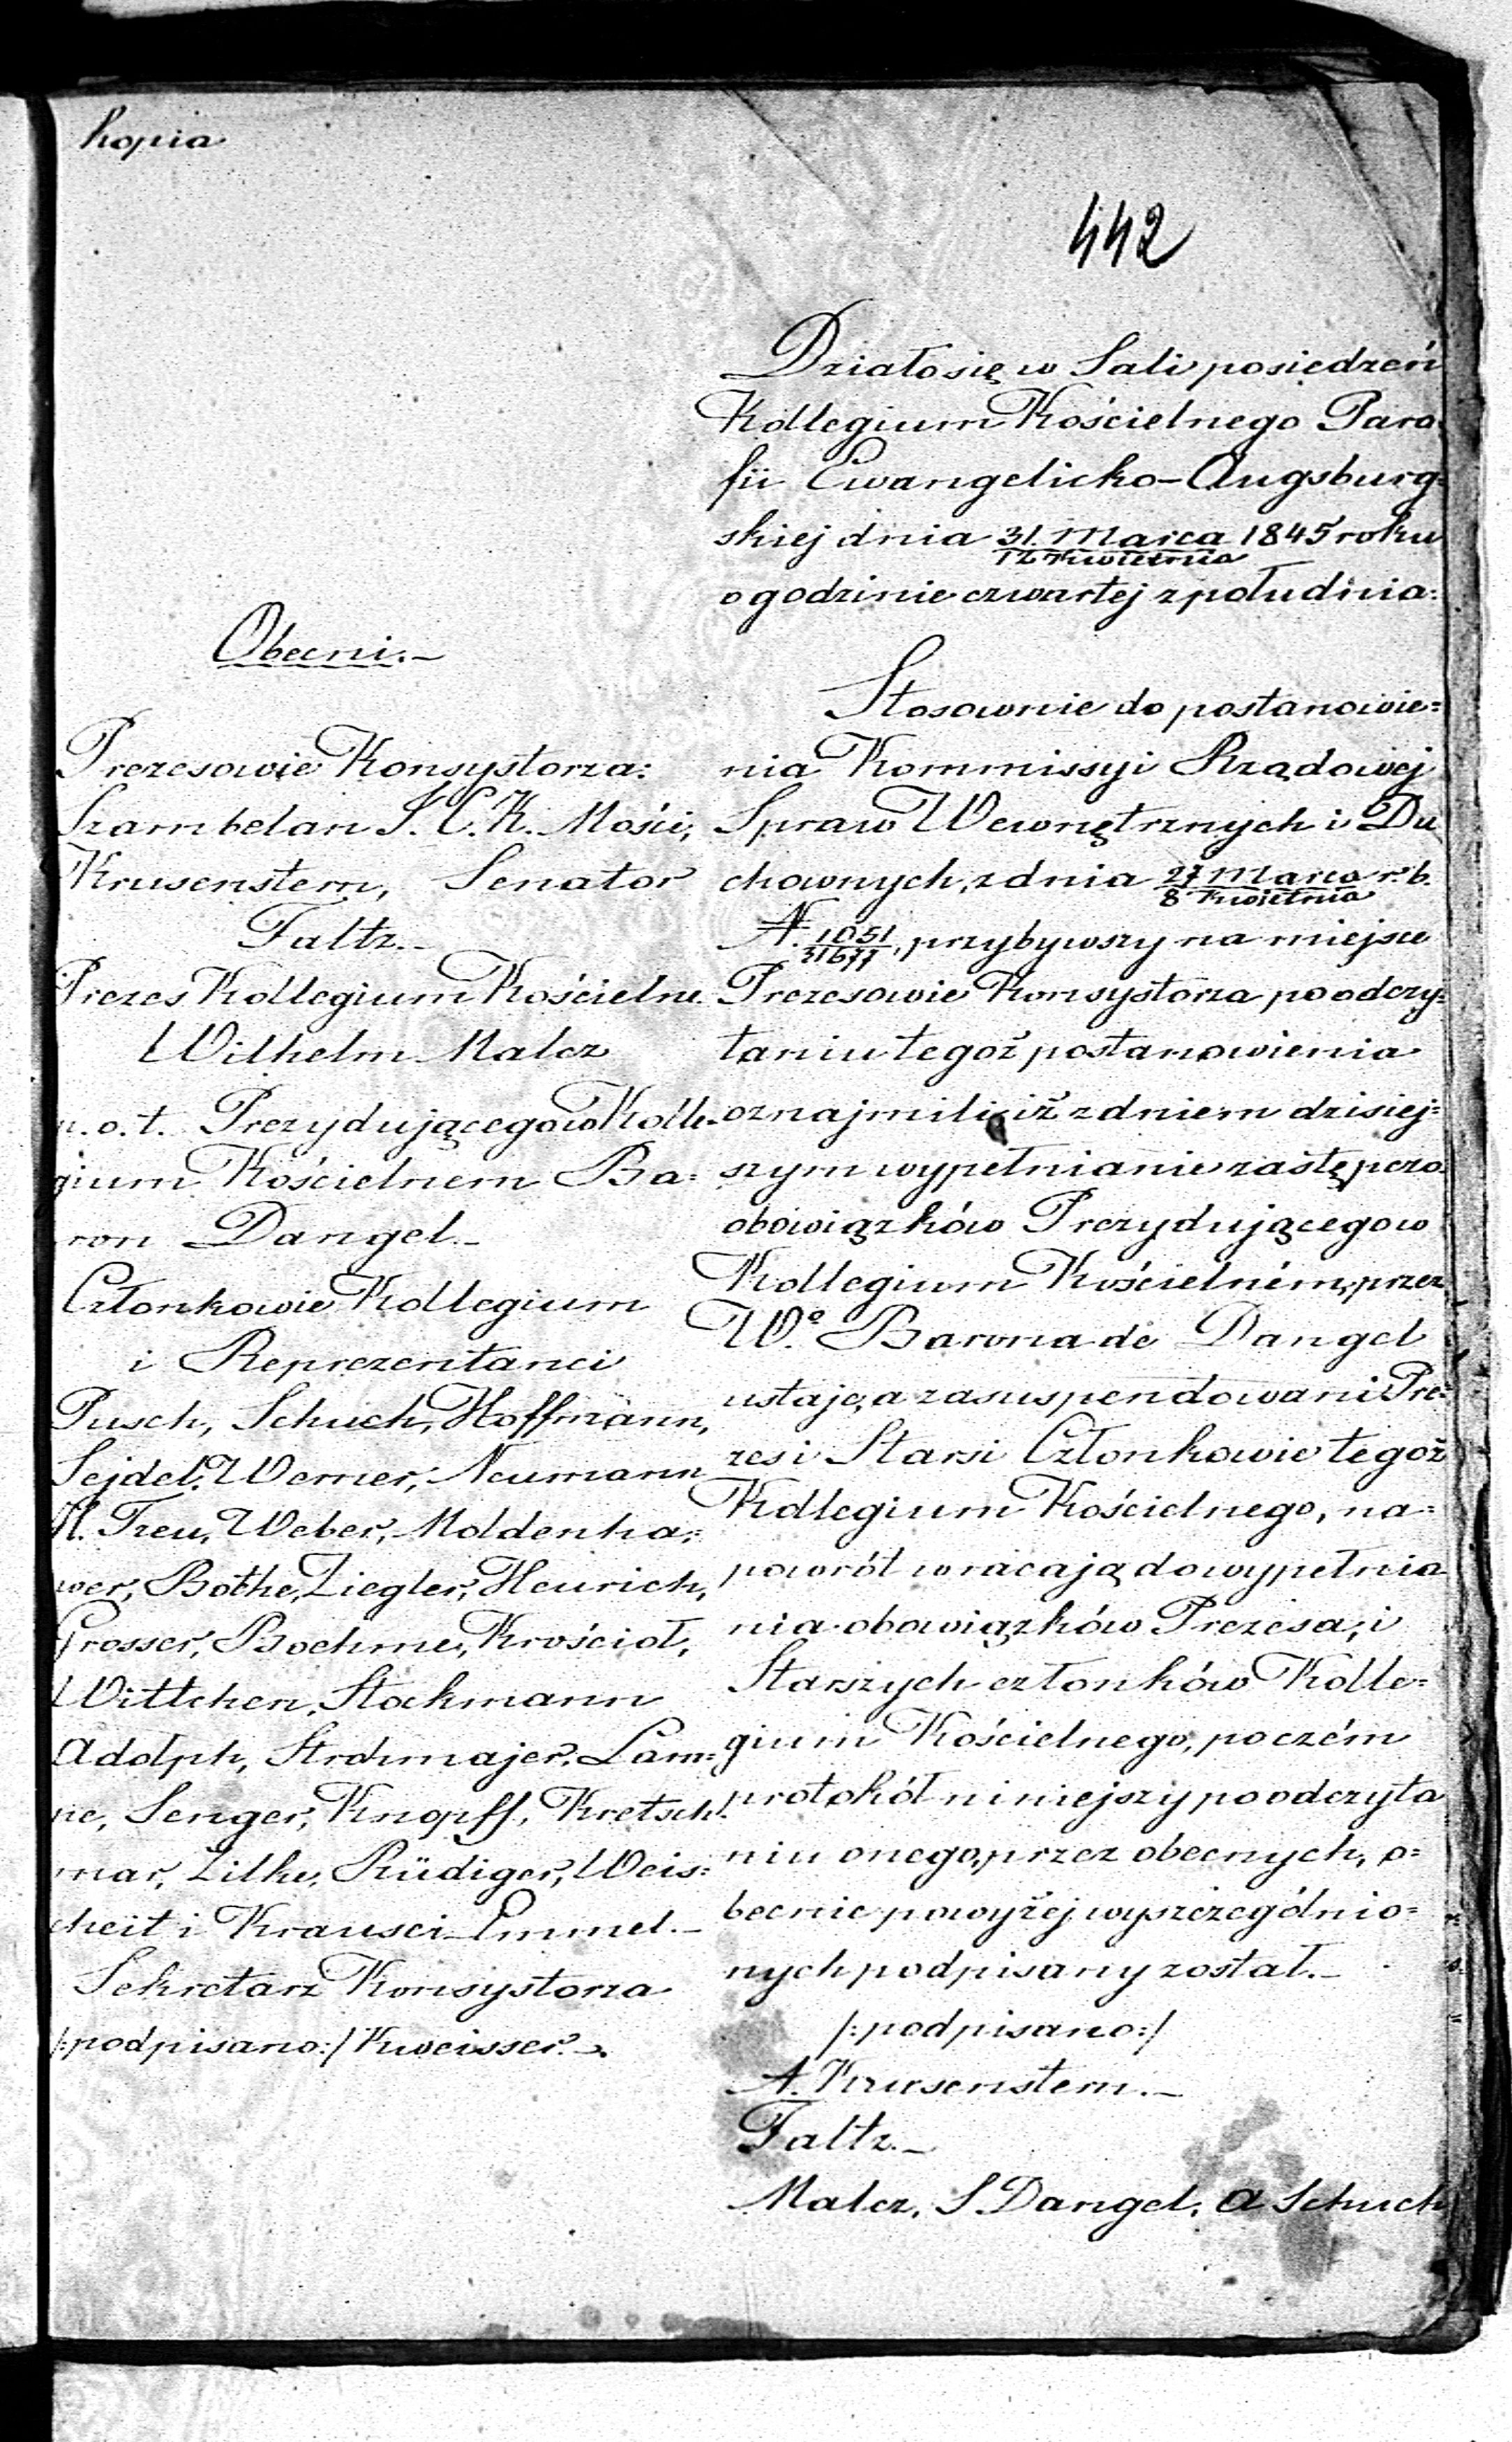 Kopia
442
Działo się w Sali posiedzeń
Kollegium Kościelnego Para
fii Ewangelicko-Augsburg=
skiej dnia 31. Marca / 12 Kwietnia 1845 roku
o godzinie czwartej z południa:
Obecni.-
Prezesowie Konsystorza:
Szambelan J. C. K. Mości,
Krusenstern, Senator
Faltz.-
Prezes Kollegium Kościelne.
Wilhelm Malcz
p. o. t. Prezydującego w Kolle-
gium Kościelnem Ba=
ron Dangel.-
Członkowie Kollegium
i Reprezentanci
Pusch, Schuch, Hoffmann,
Sejdel, Werner, Neumann
H. Treu, Weber, Moldenha=
wer, Bothe, Ziegler, Heurich,
Grosser, Boehme, Krościoł,
Wittchen, Stockmann
Adolph, Strohmajer, Lam=
pe, Senger, Knopff, Kretsch
mar, Zilke, Rüdiger, Weis=
cheit i Krause i Emmel.-
Sekretarz Konsystorza
/:podpisano:/ Kweisser.-
Stosownie do postanowie=
nia Kommissyi Rządowej
Spraw Wewnętrznych i Du
chownych, z dnia 27 Marca / 8 Kwietnia r. b.
N. 1051/31677, przybywszy na miejsce
Prezesowie Konsystorza po odczy=
taniu tegoż postanowienia
oznajmili iż z dniem dzisiej=
szym wypełnianie zastępczo
obowiązków Prezydującego w
Kollegium Kościelném, przez
Wo. Barona de Dangel
ustaje, a zasuspendowani Pre=
zes i Starsi Członkowie tegoż
Kollegium Kościelnego, na=
powrót wracają do wypełnia
nia obowiązków Prezesa, i
Starszych członków Kolle=
gium Kościelnego, poczém
protokół niniejszy po odczyta
niu onego, przez obecnych, o=
becnie powyżej wyszczególnio=
nych podpisany został.-
/:podpisano:/
A. Krusenstern.-
Faltz.-
Malcz, S Dangel, A Schuch